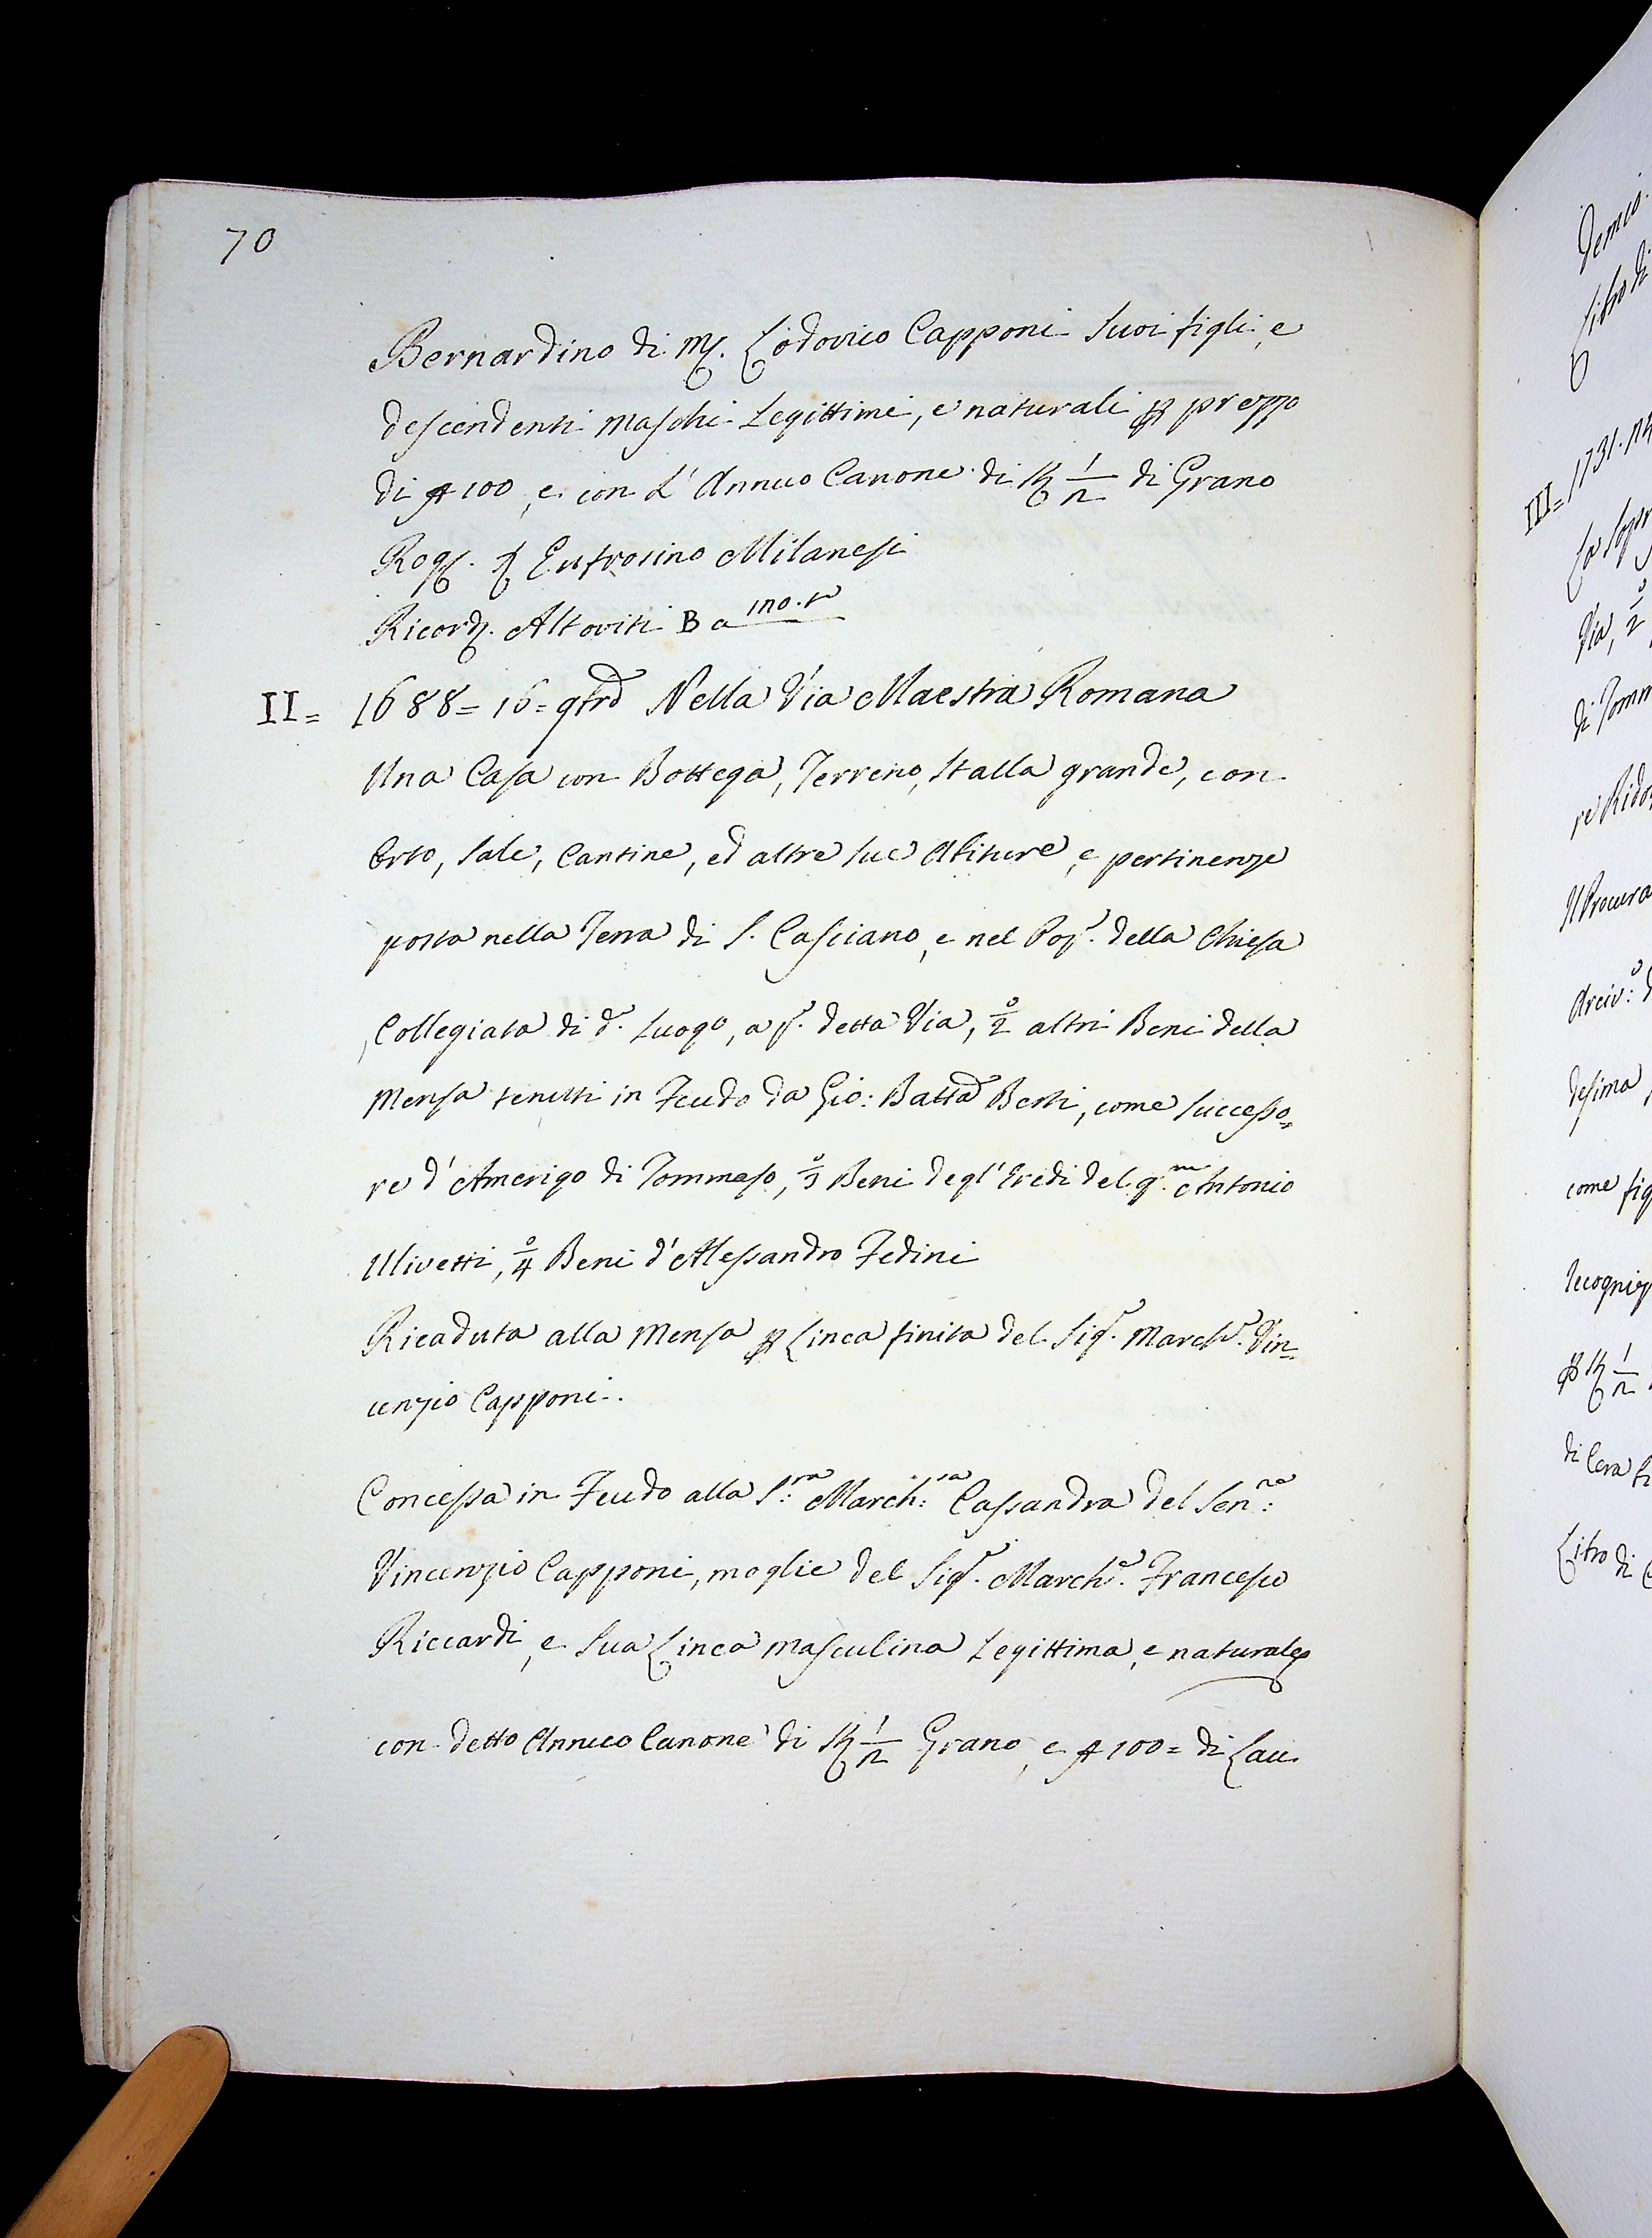 70
Bernardino di M. Lodovico Capponi Suoi figli, e
descendenti Maschi Legittimi, e naturali p prezzo
di 100, e con L'Annuo Canone di 1/2 di Grano
Rog. Eufrosino Milanesi
Ricord. Altoviti B a 170.
II= 1688= 16= Nella Via Maestra Romana
Una Casa con Bottega, Terreno, Stalla grande, con
Orto, Sale, Cantine, ed altre Sue Abiture, e pertinenze
posta nella Terra di S. Casciano, e nel Pop.o della Chiesa
Collegiata di d.o Luogo, a p.o detta Via, 2° altri Beni della
Mensa tenuti in Feudo da Gio: Batta Berti, come Successo=
re d'Amerigo di Tommaso, 3° Beni degl'Eredi del q.m Antonio
Ulivetti, 4° Beni d'Alessandro Fedini
Ricaduta alla Mensa p Linea finita del Sig.e March.e Vin=
cenzio Capponi.
Concessa in Feudo alla S:ra March:sa Cassandra del Sen:re
Vincenzio Capponi, moglie del Sig.e March.e Francesco
Riccardi, e Sua Linea Masculina Legittima, e naturale
con detto Annuo Canone di 1/2 Grano, e 100= di Lau.
III= 1731.
Via, 2°
di Tomm
Il Procura
Arciv:o
desima
come fig
1/2
di Cera
Libro di